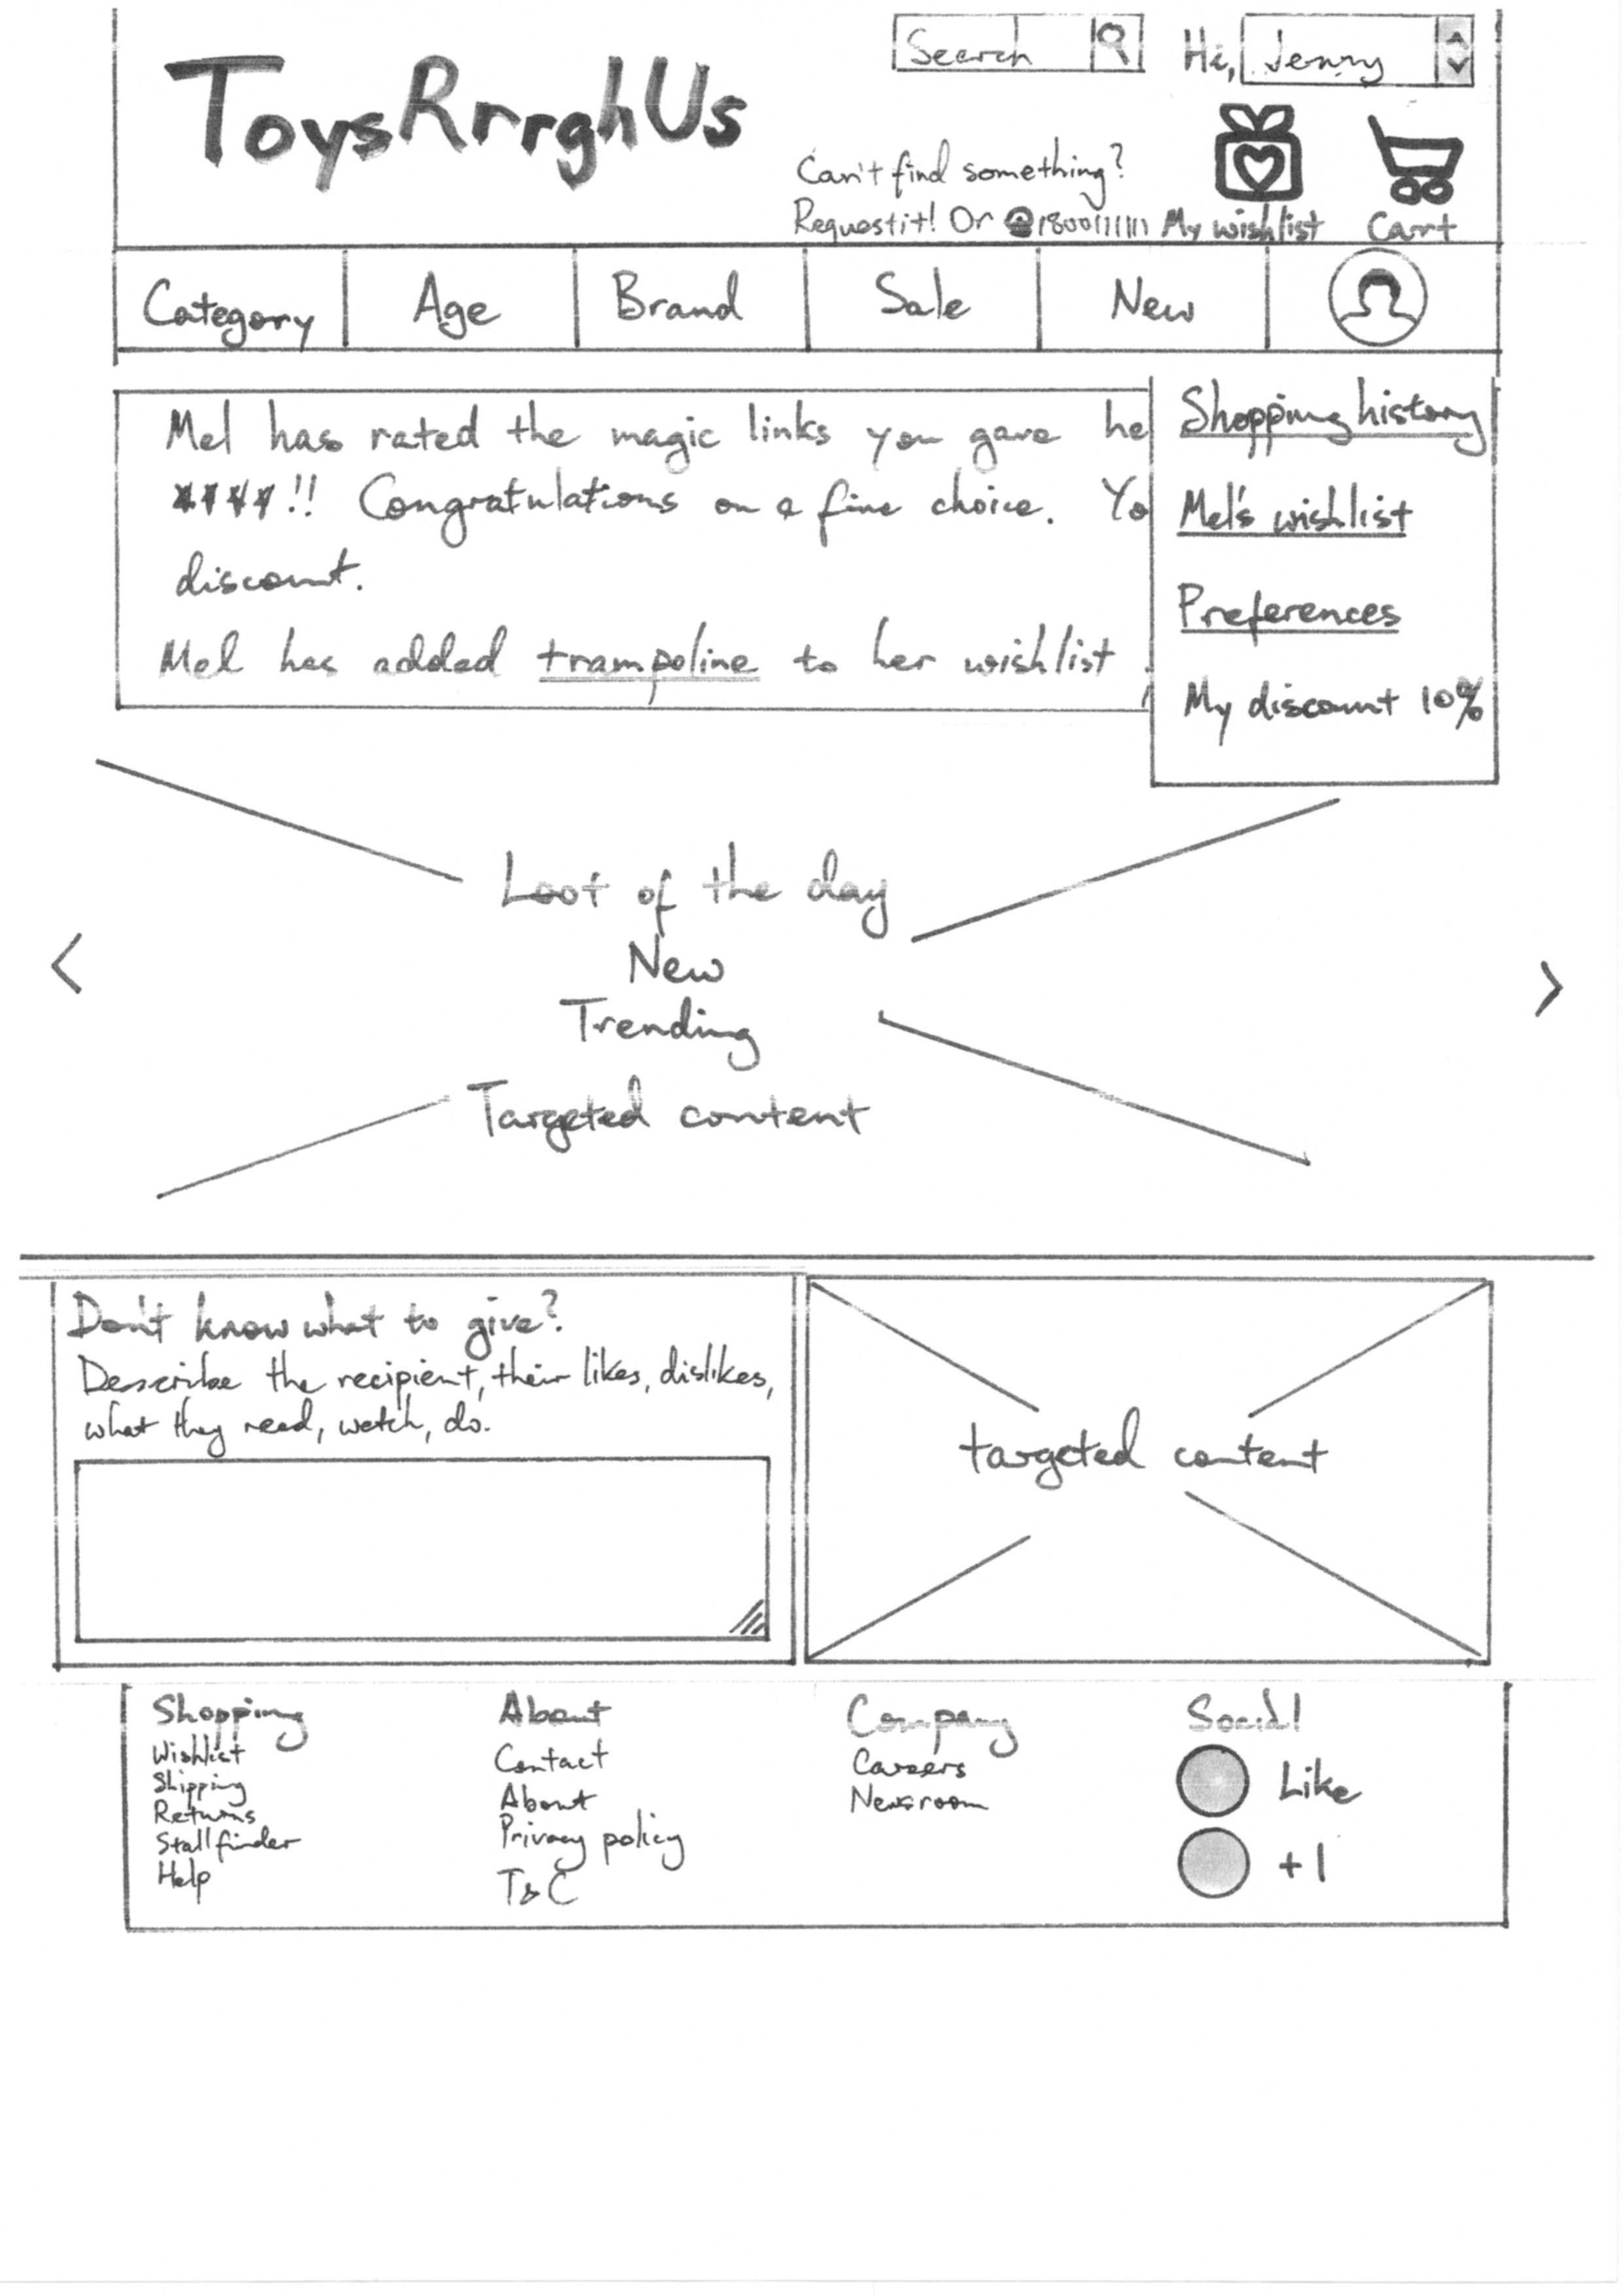 ToysRrrghUs
Search
Hi, Jenny
Can't find something?
Request it! Or 1800111111
My wishlist
Cart
Category
Age
Brand
Sale
New
Mel has rated the magic links you gave he
!! Congratulations on a fine choice. Yo
discount.
Mel has added trampoline to her wishlist
Shopping history
Mel's wishlist
Preferences
My discount 10%
Loot of the day
New
Trending
Targeted content
<
>
Don't know what to give?
Describe the recipient, their likes, dislikes,
what they read, watch, do.
targeted content
Shopping
Wishlist
Shipping
Returns
Stall finder
Help
About
Contact
About
Privacy policy
T&C
Company
Careers
Newsroom
Social
Like
+1